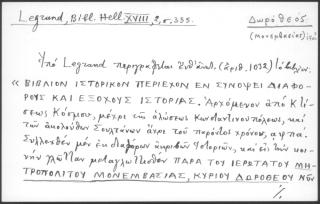 Legrand, Bibl. Hell. XVIII, 2, σ. 335.
Δωρόθεος
(Μονεμβασίας)
Ὑπὸ Legrand περιγράφεται (ἀριθ. 1032)
« ΒΙΒΛΙΟΝ ΙΣΤΟΡΙΚΟΝ ΠΕΡΙΕΧΟΝ ΕΝ ΣΥΝΟΨΕΙ ΔΙΑΦΟ-
ΡΟΥΣ ΚΑΙ ΕΞΟΧΟΥΣ ΙΣΤΟΡΙΑΣ. Ἀρχόμενον ἀπὸ Κτί-
σεως Κόσμου, μέχρι τῆς ἁλώσεως Κωνσταντινουπόλεως, καὶ
τῶν ἀκολούθων Σουλτάνων ἄχρι τοῦ παρόντος χρόνου,
Συλλεχθὲν μὲν ἐκ διαφόρων ἀκριβῶν Ἱστοριῶν, καὶ εἰς τὴν κοι-
νὴν γλῶτταν μεταγλωττισθὲν ΠΑΡΑ ΤΟΥ ΙΕΡΩΤΑΤΟΥ ΜΗ-
ΤΡΟΠΟΛΙΤΟΥ ΜΟΝΕΜΒΑΣΙΑΣ, ΚΥΡΙΟΥ ΔΩΡΟΘΕΟΥ
./.